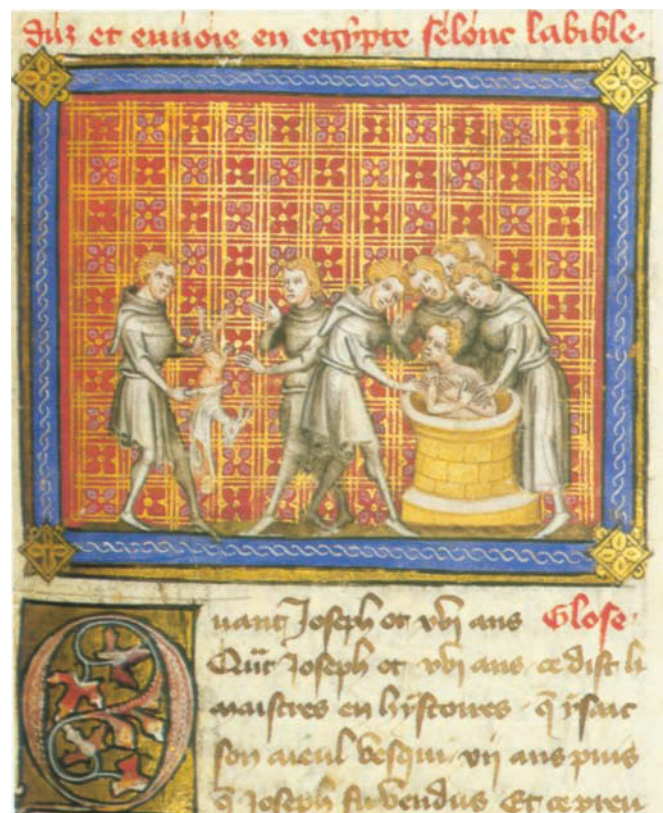 duz et enuoie en egypte selonc labible.
Quant Joseph ot xvj ans Glose.
Quāt Joseph ot xvj ans ce dist li
maistres en hystoires q̄ ysaac
son aieul vesqui xij ans puis
q̄ Joseph fu vendus Et ce preu